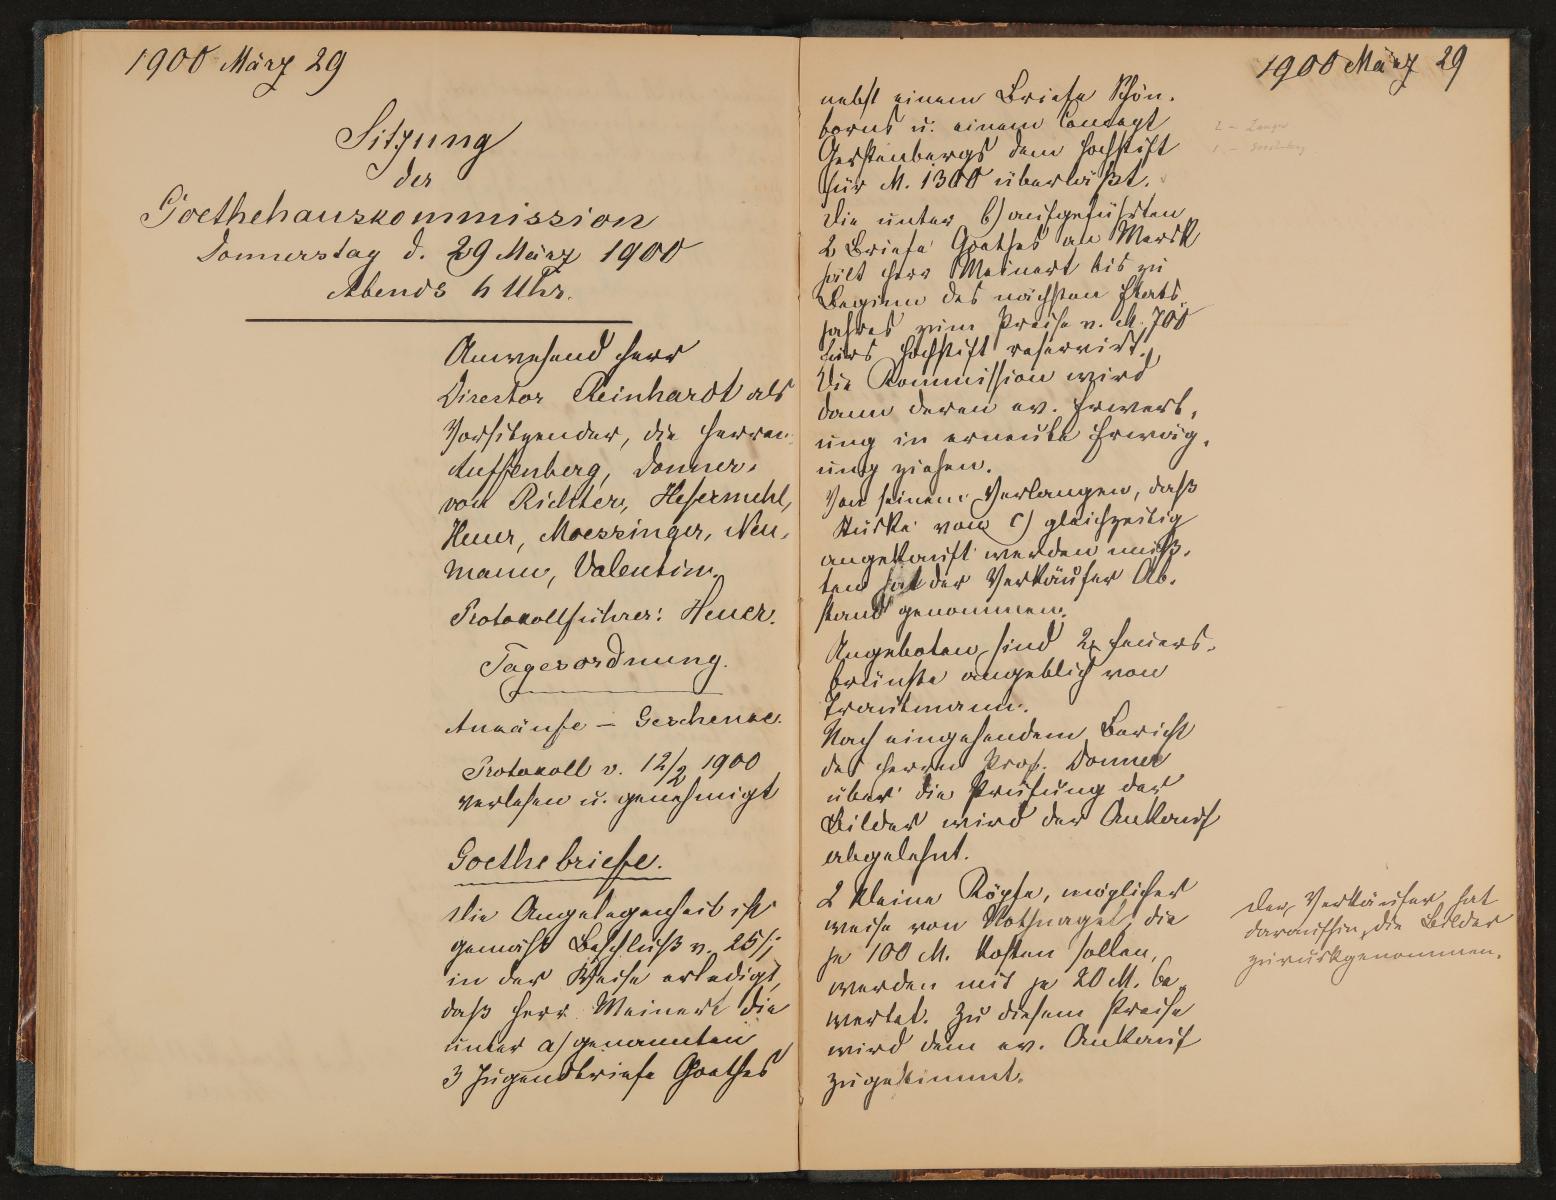 1900 März 29
Sitzung
der
Goethehauskommission
Donnerstag d. 29 März 1900
Abends 6 Uhr.
Anwesend Herr
Director Reinhardt als
Vorsitzender, die Herren
Auffenberg, Donner-
von Richter, Hefermehl,
Heuer, Moessinger, Neu-
mann, Valentin.
Protokollführer: Heuer.
Tagesordnung.
Ankäufe – Geschenke.
Protokoll v. 12/2 1900
verlesen u. genehmigt
Goethebriefe.
Die Angelegenheit ist
gemäß Beschluß v. 25/1
in der Weise erledigt,
daß Herr Meinert die
unter a) genannten
3 Jugendbriefe Goethes
1900 März 29
nebst einem Briefe Schön-
borns u. einem Concept
Gerstenbergs dem Hochstift
für M. 1300 überläßt.
Die unter b) aufgeführten
2 Briefe Goethes an Merck
hält Herr Meinert bis zu
Beginn des nächsten Etats-
jahres zum Preise v. M. 700
fürs Hochstift reservirt.
Die Kommission wird
dann deren ev. Erwerb-
ung in erneute Erwäg-
ung ziehen.
Von seinem Verlangen, daß
Stücke von c) gleichzeitig
angekauft werden müß-
ten hat der Verkäufer Ab-
stand genommen.
Angeboten sind 2 Feuers-
brünste angeblich von
Trautmann.
Nach eingehendem Bericht
des Herren Prof. Donner
über die Prüfung der
Bilder wird der Ankauf
abgelehnt.
2 kleine Köpfe, möglicher
weise von Nothnagel, die
je 100 M. kosten sollen,
werden mit je 20 M. be-
wertet. Zu diesem Preise
wird dem ev. Ankauf
zugestimmt.
Der Verkäufer hat
daraufhin die Bilder
zurückgenommen.